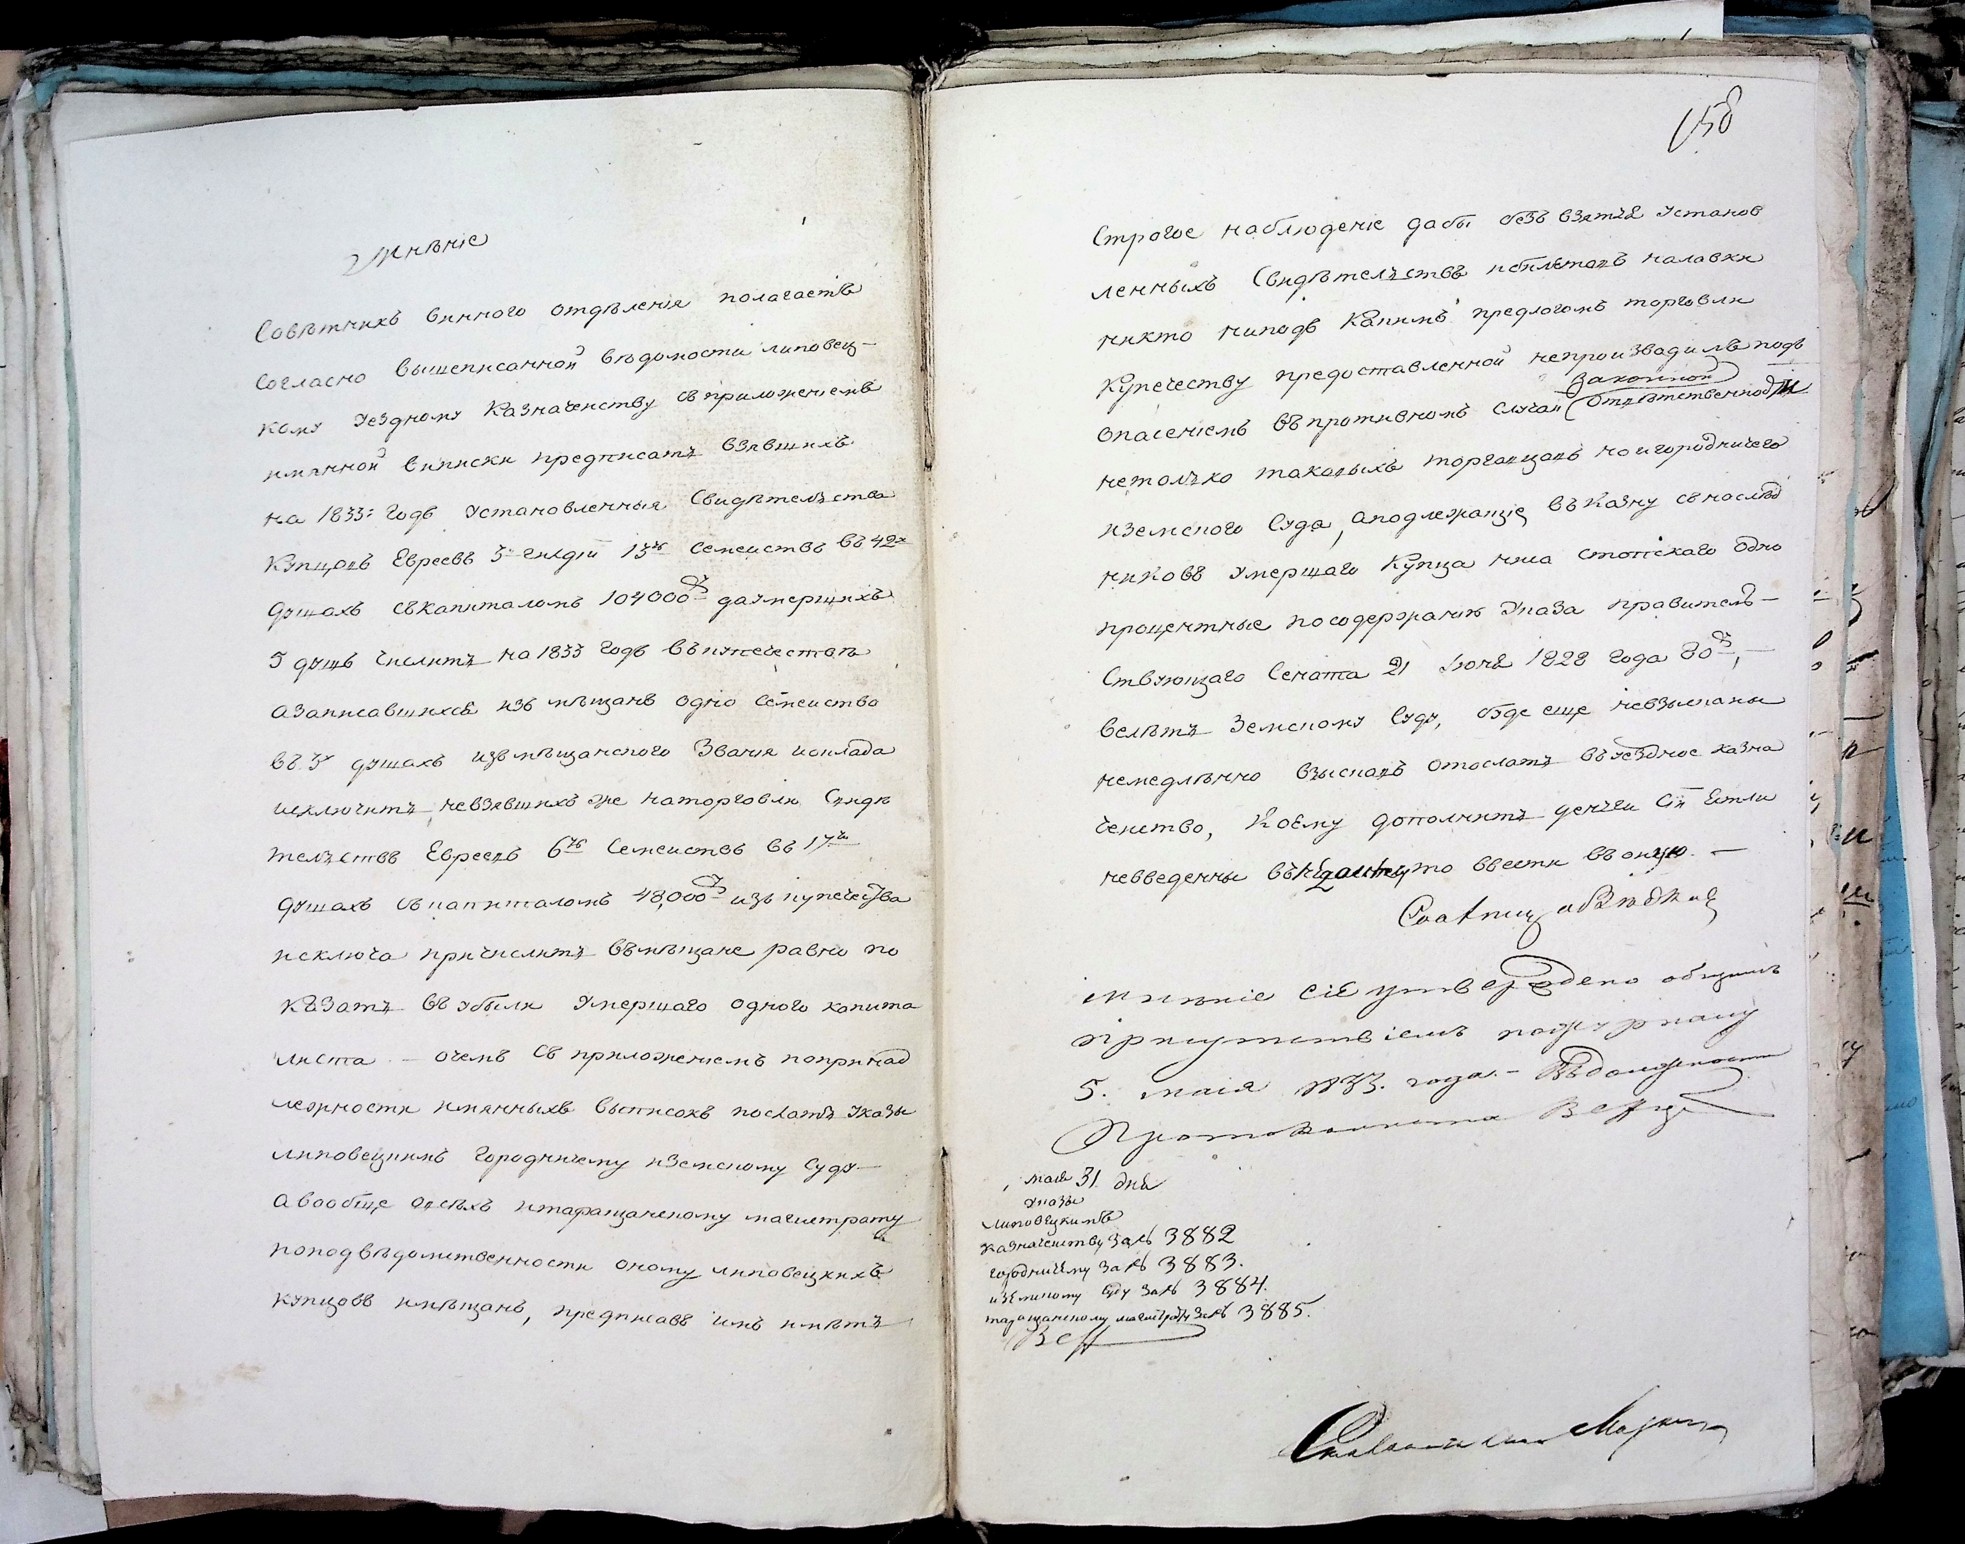 Мнѣніе
Совѣтникъ виннаго отдѣленія полагаетъ
согласно вышеписанной вѣдомости липовец-
кому уездному казначейству съ приложеніемъ
имянной выписки предписать взявшихъ
на 1833: годъ установленныя свидѣтельства
купцовъ Евреевъ 3й гилдіи 13ть семействъ въ 42х
душахъ съ капиталомъ 104000 да умершихъ
5 душъ числить на 1833 годъ въ купечествѣ
а записавшихся изъ мѣщанъ одно семейство
въ 3х душахъ изъ мѣщанского званія и оклада
исключить, невзявшихъ же на торговлю свидѣ
тельствъ Евреевъ 6ть семействъ въ 17ти
душахъ съ капиталомъ 48,000 изъ купечества
исключа причислить въ мѣщане равно по
казать въ убыли умершаго одного капита
листа – о чемъ съ приложеніемъ по принад
лежности имянныхъ выписокъ послать указы
липовецкимъ городничему и земскому суду –
а вообще о всѣхъ и таращанскому магистрату
по подвѣдомственности оному липовецкихъ
купцовъ и мѣщанъ, предписавъ имъ имѣть
158
строгое наблюденіе дабы безъ взятія установ
ленныхъ свидѣтельствъ и билетовъ на лавки
никто ни подъ какимъ предлогомъ торговли
купечеству предоставленной непроизводилъ подъ
законной
опасеніемъ въ противномъ случаи отвѣтственности
нетолько таковыхъ торговцовъ но и городничего
и земского суда, а подлежащіе въ казну съ наслѣд
никовъ умершаго купца одно
процентные по содержанію указа правитель-
ствующаго сената 21 1828 года 80,-
велѣть земскому суду, буде еще невзысканы
немедлѣнно взыскавъ отослать въ уездное казна
чейство, коему дополнить деньги сіи естли
невведенны въ то ввести въ оную. –
мнѣніе сіе утверждено общимъ
присутствіемъ по журналу
5. маія 1833. года. – Въ должности
Протоколиста
маія 31 дня
указы
липовецкимъ
казначейству за № 3882
городничему за № 3883.
и земскому суду за № 3884.
таращанскому магистрату за № 3885.